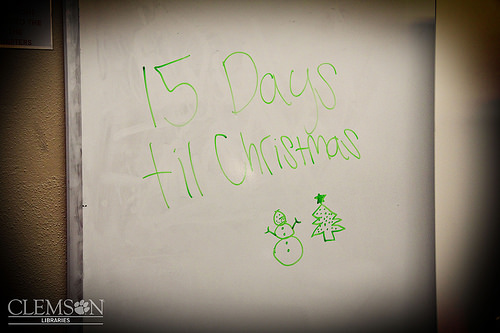 15 Days
til Christmas
CLEMSON
LIBRARIES